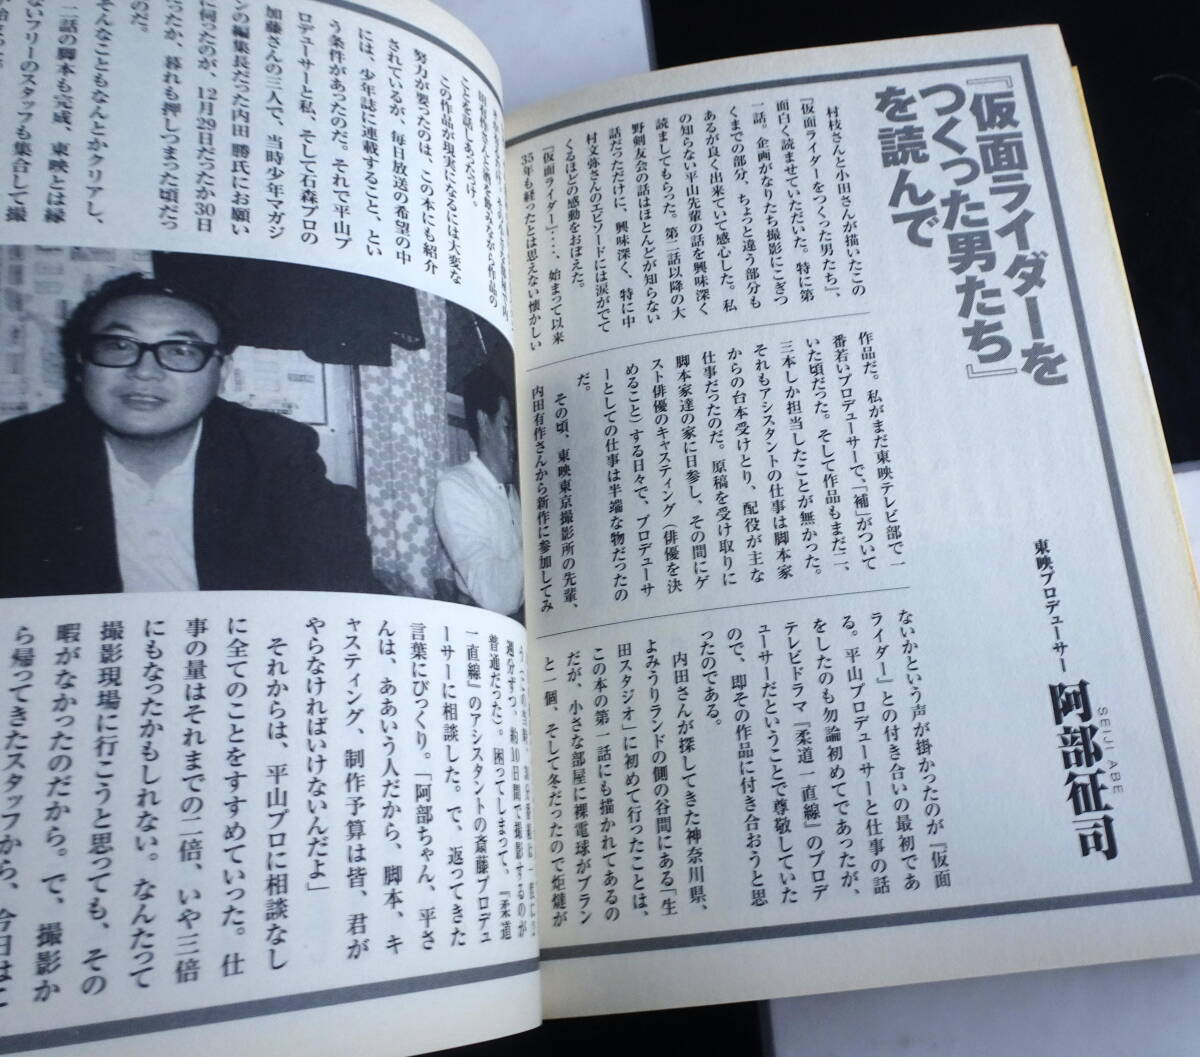 『仮面ライダーを
つくった男たち』
を読んで
東映プロデューサー 阿部征司
SEIJI ABE
村枝さんと小田さんが描いたこの
『仮面ライダーをつくった男たち』、
面白く読ませていただいた。特に第
一話。企画がなりたち撮影にこぎつ
くまでの部分、ちょっと違う部分も
あるが良く出来ていて感心した。私
の知らない平山先輩の話を興味深く
読ましてもらった。第二話以降の大
野剣友会の話はほとんどが知らない
話だっただけに、興味深く、特に中
村文弥さんのエピソードには涙がでて
くるほどの感動をおぼえた。
『仮面ライダー』…、始まって以来
35年も経ったとは思えない懐かしい
作品だ。私がまだ東映テレビ部で一
番若いプロデューサーで、「補」がついて
いた頃だった。そして作品もまだ二、
三本しか担当したことが無かった。
それもアシスタントの仕事は脚本家
からの台本受けとり、配役が主な
仕事だったのだ。原稿を受け取りに
脚本家達の家に日参し、その間にゲ
スト俳優のキャスティング（俳優を決
めること）する日々で、プロデューサ
ーとしての仕事は半端な物だったの
だ。
その頃、東映東京撮影所の先輩、
内田有作さんから新作に参加してみ
ないかという声が掛かったのが『仮面
ライダー』との付き合いの最初であ
る。平山プロデューサーと仕事の話
をしたのも勿論初めてであったが、
テレビドラマ『柔道一直線』のプロデ
ューサーだということで尊敬していた
ので、即その作品に付き合おうと思
ったのである。
内田さんが探してきた神奈川県、
よみうりランドの側の谷間にある「生
田スタジオ」に初めて行ったことは、
この本の第一話にも描かれてあるの
だが、小さな部屋に裸電球がブラン
と一個、そして冬だったので炬燵が
ことを話しあったっけ。
この作品が現実になるには大変な
努力が要ったのは、この本にも紹介
されているが、毎日放送の希望の中
には、少年誌に連載すること、とい
う条件があったのだ。それで平山プ
ロデューサーと私、そして石森プロの
加藤さんの三人で、当時少年マガジ
ンの編集長だった内田 勝氏にお願い
に伺ったのが、12月29日だったか30日
だったか、暮れも押しつまった頃だっ
たのだ。
そんなこともなんとかクリアし、
二話の脚本も完成、東映とは縁
ないフリーのスタッフも集合して撮
週分ずつ、約10日間で撮影するのが
普通だった）。困ってしまって、『柔道
一直線』のアシスタントの斎藤プロデュ
ーサーに相談した。で、返ってきた
言葉にびっくり。「阿部ちゃん、平さ
んは、ああいう人だから、脚本、キ
ャスティング、制作予算は皆、君が
やらなければいけないんだよ」
それからは、平山プロに相談なし
に全てのことをすすめていった。仕
事の量はそれまでの二倍、いや三倍
にもなったかもしれない。なんたって
撮影現場に行こうと思っても、その
暇がなかったのだから。で、撮影か
ら帰ってきたスタッフから、今日はこ